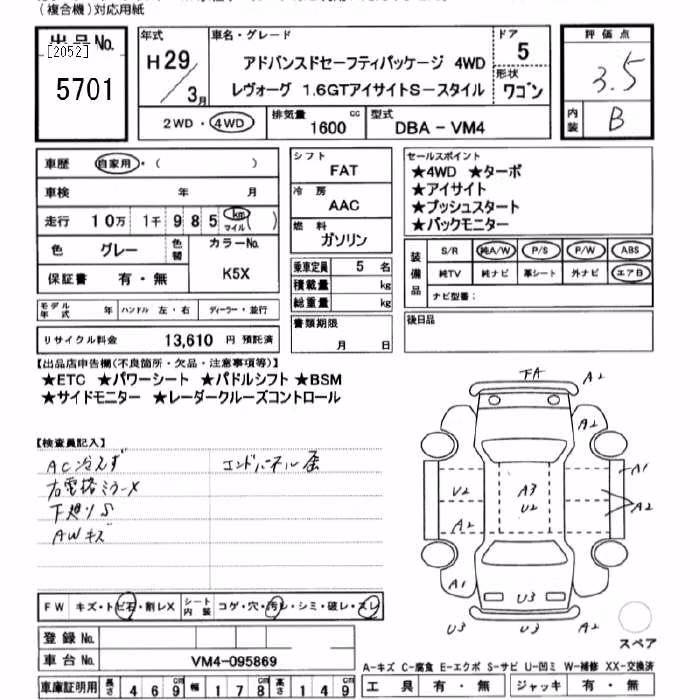 (複合機)対応用紙
出品No.
[2052]
5701
年式
H29/3月
車名・グレード
アドバンスドセーフティパッケージ 4WD
レヴォーグ 1.6GTアイサイトS−スタイル
ドア
5
形状
ワゴン
2WD・4WD
排気量 1600 cc
型式 DBA - VM4
評価点
3.5
内装 B
車歴 自家用・( )
車検 年 月
走行 10万 1千 985 km マイル ( )
色 グレー 色替 カラーNo. K5X
保証書 有・無
モデル年式 年 ハンドル 左・右 ディーラー・並行
リサイクル料金 13,610 円 預託済
シフト
FAT
冷房
AAC
燃料
ガソリン
乗車定員 5 名
積載量 kg
総重量 kg
書類期限
月 日
セールスポイント
★4WD ★ターボ
★アイサイト
★プッシュスタート
★バックモニター
装備品
S/R 純A/W P/S P/W ABS
純TV 純ナビ 革シート 外ナビ エアB
ナビ型番:
後日品
【出品店申告欄(不良箇所・欠品・注意事項等)】
★ETC ★パワーシート ★パドルシフト ★BSM
★サイドモニター ★レーダークルーズコントロール
【検査員記入】
AC冷えず
右電格ミラーX
下廻りS
AWキズ
エンドパネル歪
FA A2
A2
A1
A2
V2
A2
A3
U2
A1
U3
U3 U3 A2
スペア
FW キズ・トビ石・割レX シート内装 コゲ・穴・汚レ・シミ・破レ・スレ
登録No.
車台No. VM4-095869
車庫証明用 長さ 469 cm 幅 178 cm 高さ 149 cm
A-キズ C-腐食 E-エクボ S-サビ U-凹ミ W-補修 XX-交換済
工具 有・無 ジャッキ 有・無